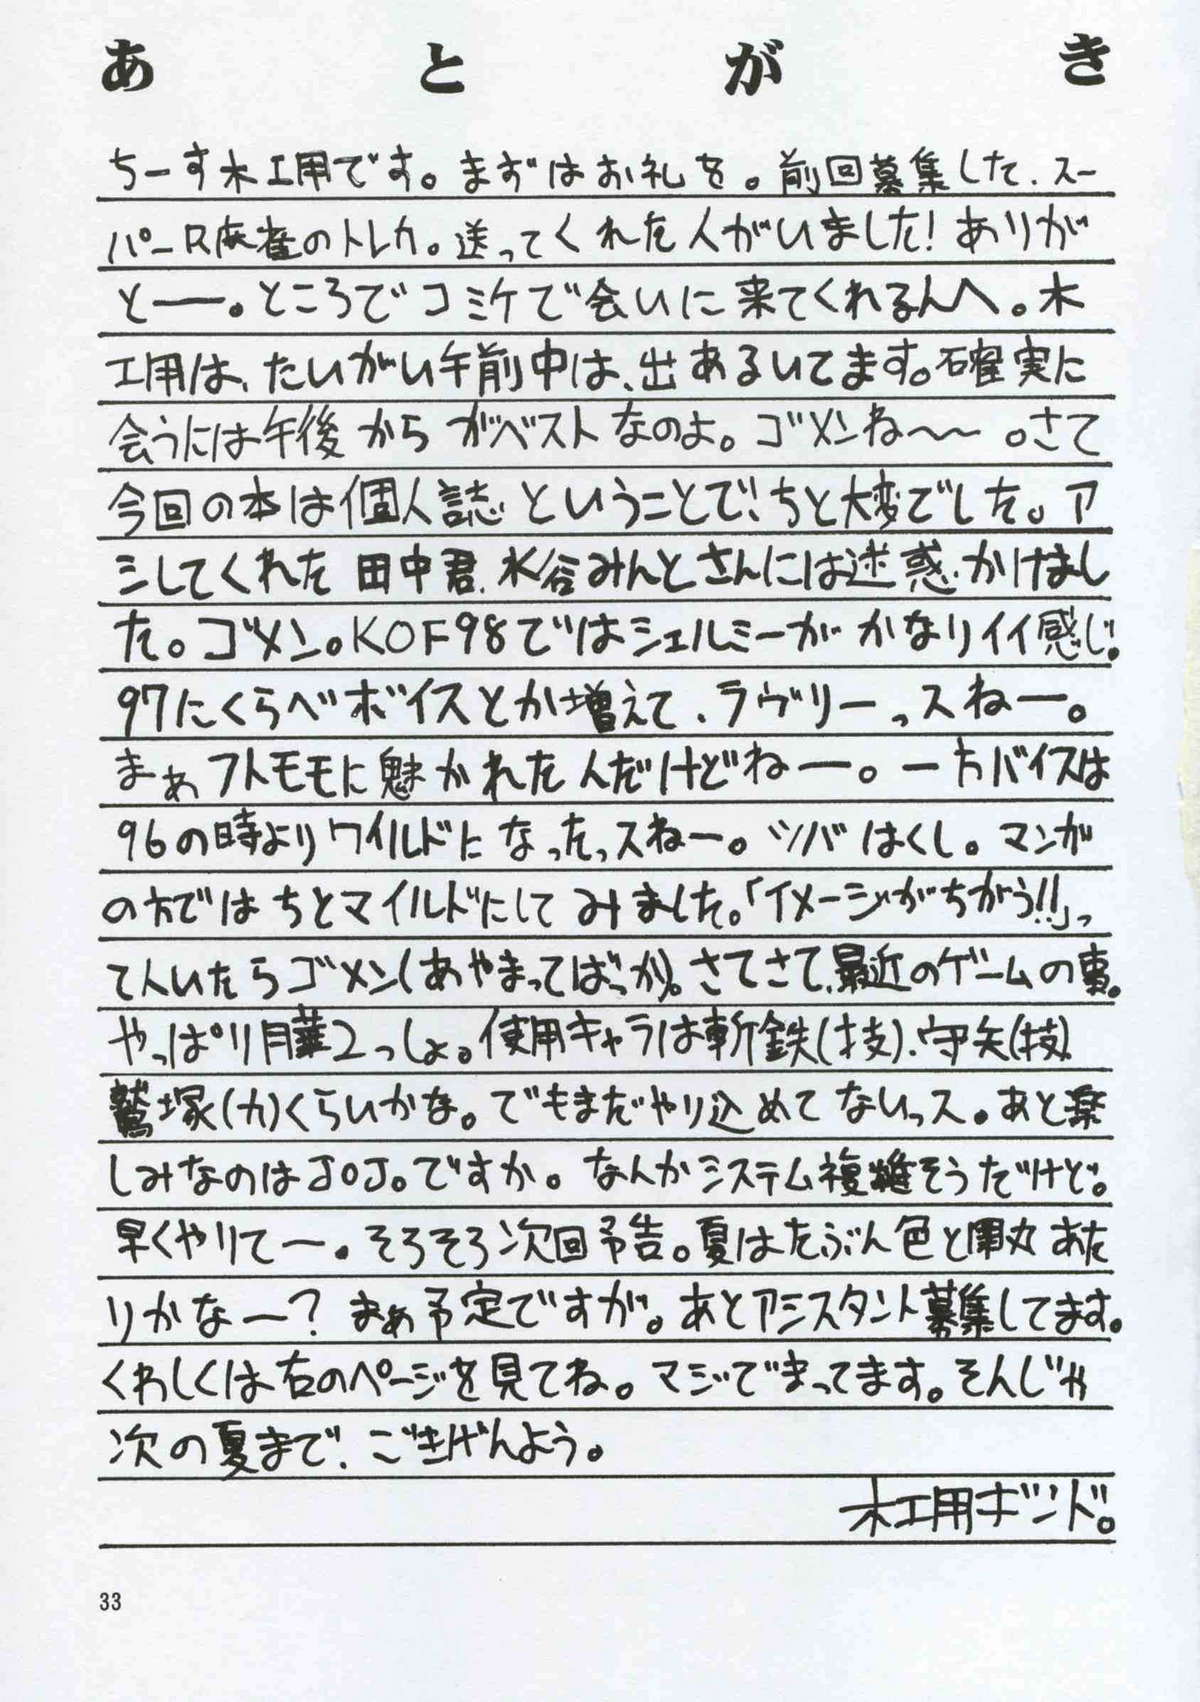 あとがき
ちーす木工用です。まずはお礼を。前回募集した、スー
パーR麻雀のトレカ。送ってくれた人がいました!ありが
とー。ところでコミケで会いに来てくれるんへ。木
工用は、たいがい午前中は、出あるいてます。確実に
会うには午後からがベストなのよ。ゴメンね〜〜。さて
今回の本は個人誌ということで、ちと大変でした。ア
シしてくれた田中君、水谷みんとさんには迷惑かけまし
た。ゴメン。KOF98ではシェルミーがかなりイイ感じ。
97にくらべボイスとか増えて、ラヴリーっスねー。
まぁフトモモに魅かれた人だけどねー。一方バイスは
96の時よりワイルドになったっスねー。ツバはくし。マンガ
の方ではちとマイルドにしてみました。「イメージがちがう!!」っ
て人いたらゴメン(あやまってばっか)。さてさて、最近のゲームの事。
やっぱり月華2っしょ。使用キャラは斬鉄(技)、守矢(技)
鷲塚(力)くらいかな。でもまだやり込めてないっス。あと楽
しみなのはJOJO。ですか。なんかシステム複雑そうだけど。
早くやりてー。そろそろ次回予告。夏はたぶん色と闇丸あた
りかなー?まぁ予定ですが。あとアシスタント募集してます。
くわしくは右のページを見てね。マジでまってます。そんじゃ
次の夏まで、ごきげんよう。
木工用ボンド。
33